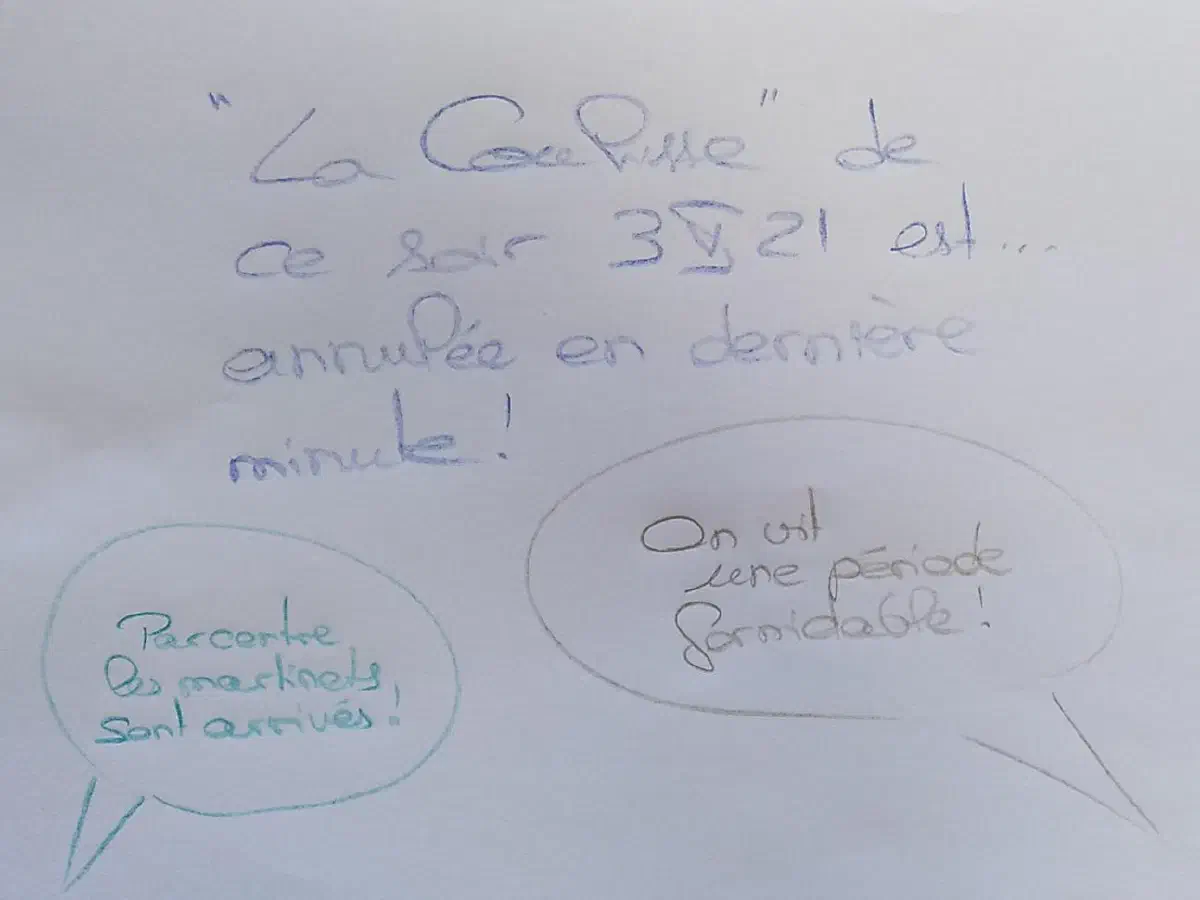 "La Coulisse" de
ce soir 3 V 21 est...
annulée en dernière
minute!
On vit
une période
formidable!
Parcontre
les martinets
sont arrivés!